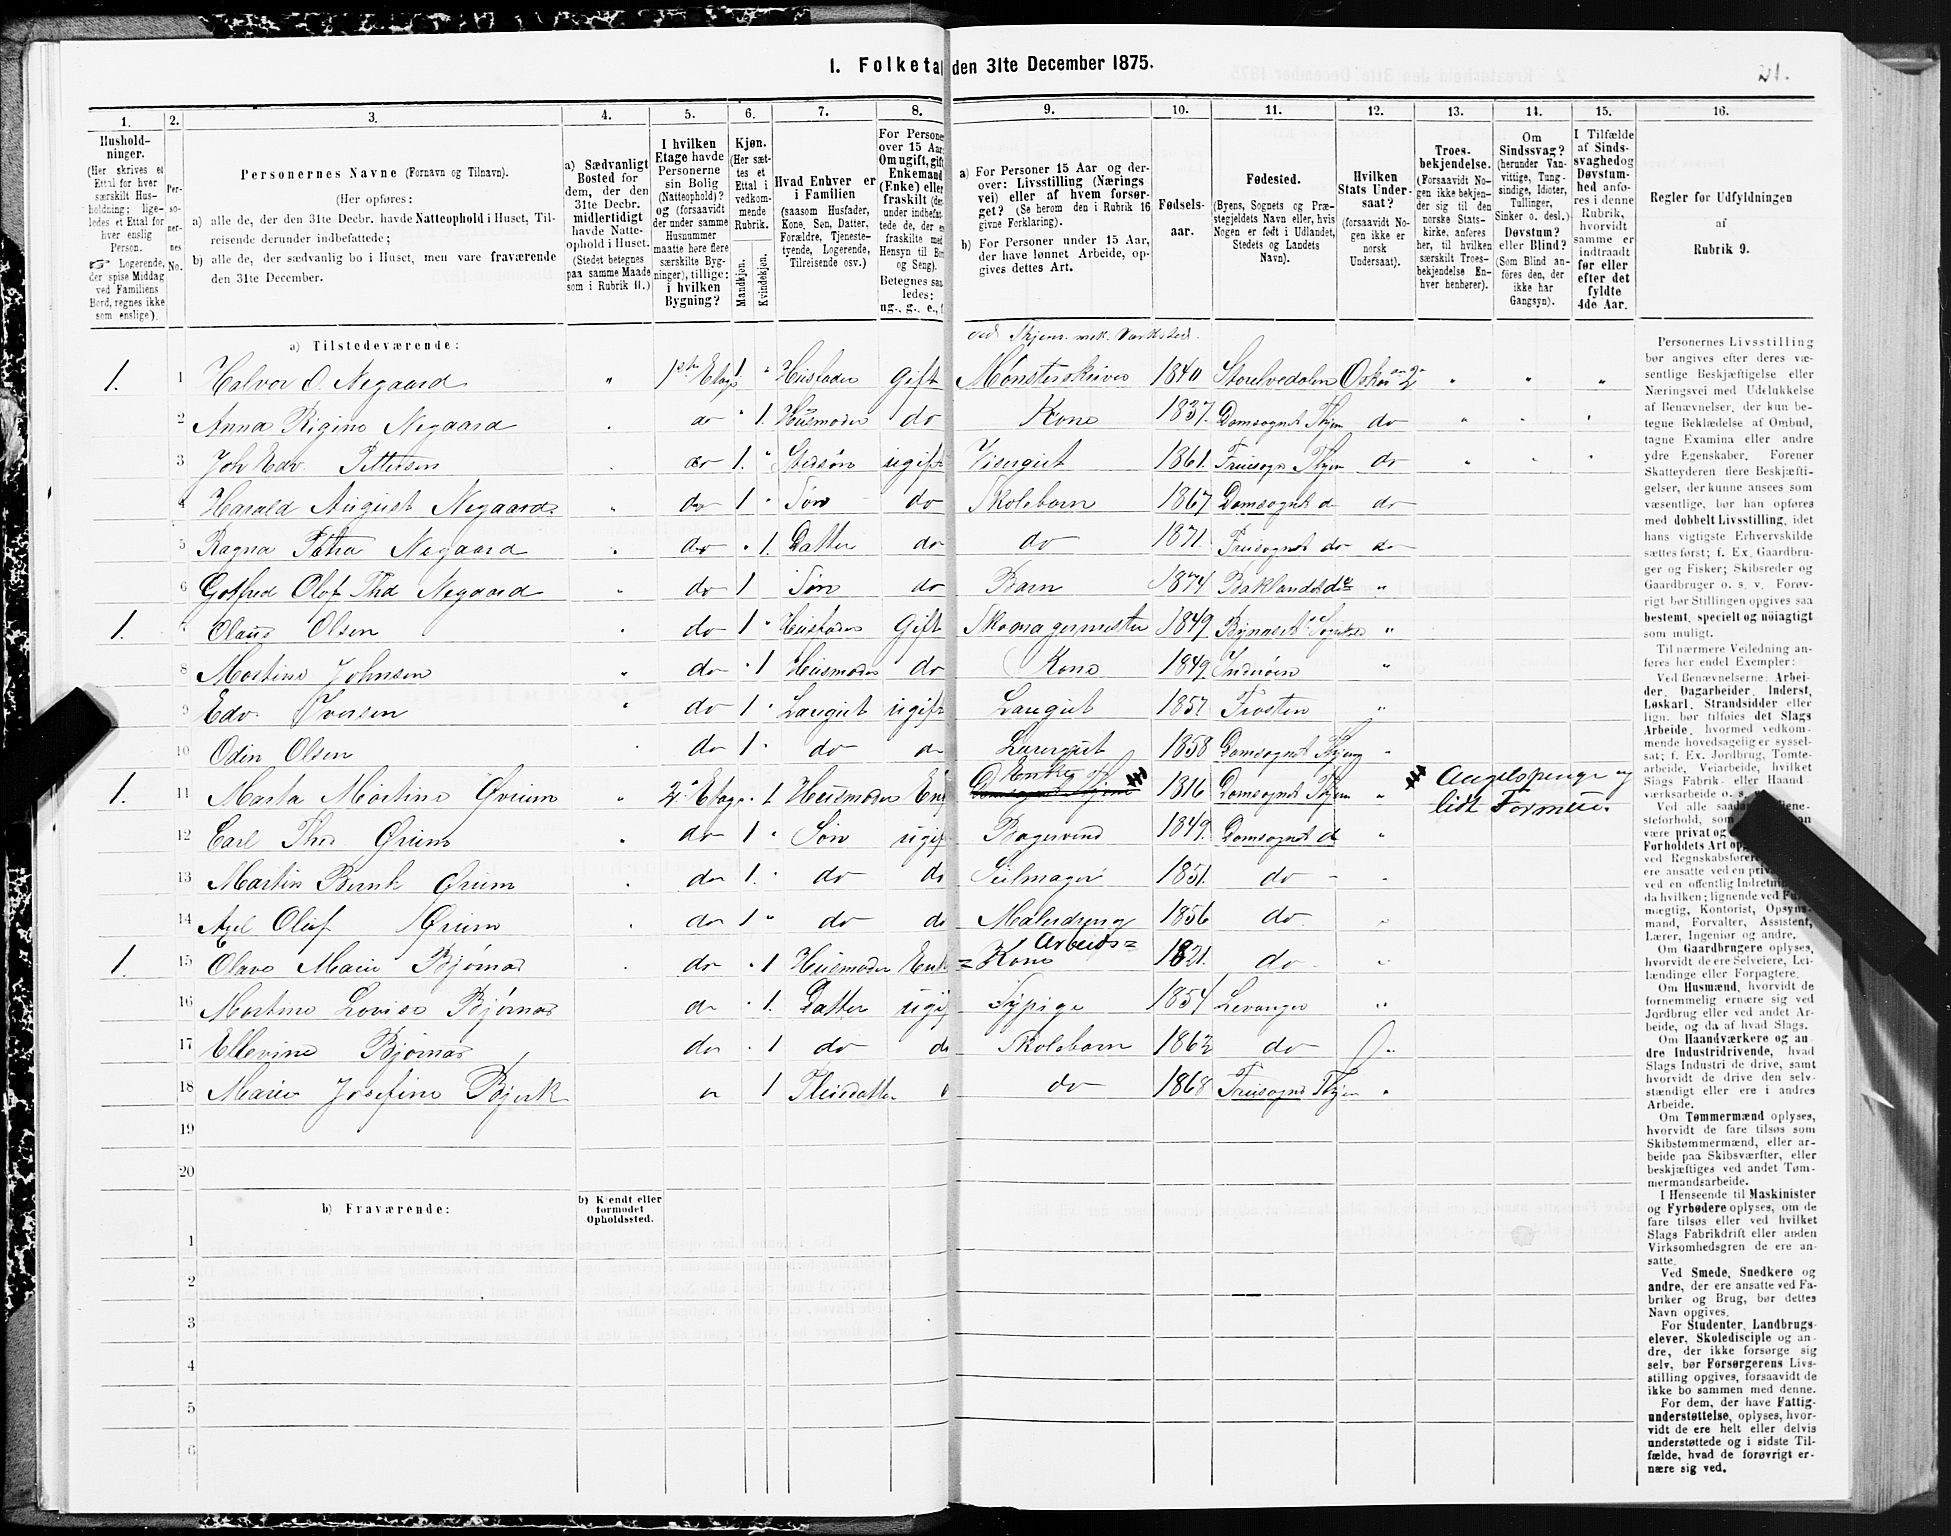 1. Folketal den 31te December 1875.
21.
1.
2.
3.
4.
5.
6.
7.
8.
9.
10.
11.
12.
13.
14.
15.
16.
Hushold-
ninger.
(Her skrives et
Ettal for hver
særskilt Hus-
holdning; lige-
ledes et Ettal for
hver enslig
Person.
Logerende,
der spise Middag
ved Familiens
Bord, regnes ikke
som enslige).
Per-
so-
ner-
nes
No.
Personernes Navne (Fornavn og Tilnavn).
(Her opføres:
a) alle de, der den 31te Decbr. havde Natteophold i Huset, Til-
reisende derunder indbefattede;
b) alle de, der sædvanlig bo i Huset, men vare fraværende
den 31te December.
a) Sædvanligt
Bosted for
dem, der den
31te Decbr.
midlertidigt
havde Natte-
ophold i Huset.
(Stedet betegnes
paa samme Maade
som i Rubrik 11.)
I hvilken
Etage havde
Personerne
sin Bolig
(Natteophold)?
og (forsaavidt
der under samme
Husnummer
maatte høre flere
særskilte Byg-
ninger), tillige:
i hvilken
Bygning?
Kjøn.
(Her sæt-
tes et
Ettal i
vedkom-
mende
Rubrik.
Mandkjøn.
Kvindekjøn.
Hvad Enhver er
i Familien
(saasom Husfader,
Kone, Søn, Datter,
Forældre, Tjeneste-
tyende, Logerende,
Tilreisende osv.)
For Persone
over 15 Aar
Om ugift, gift
Enkemand
(Enke) eller
fraskilt (der
under indbefat-
tede de, der e
fraskilte med
Hensyn til Bo
og Seng).
Betegnes saa
ledes:
ug., g., e.,
a) For Personer 15 Aar og der-
over: Livsstilling (Nærings
vei) eller af hvem forsør-
get? (Se herom den i Rubrik 16
givne Forklaring).
b) For Personer under 15 Aar,
der have lønnet Arbeide, op-
gives dettes Art.
Fødsels-
aar.
Fødested.
(Byens, Sognets og Præ-
stegjeldets Navn eller, hvis
Nogen er født i Udlandet,
Stedets og Landets
Navn).
Hvilken
Stats Under-
saat?
(forsaavidt No-
gen ikke er
norsk
Undersaat).
Troes-
bekjendelse.
(Forsaavidt No-
gen ikke bekjen-
der sig til den
norske Stats-
kirke, anføres
her, til hvilken
særskilt Troes-
bekjendelse En-
hver henhører).
Om
Sindssvag?
(herunder Van-
vittige, Tung-
sindige, Idioter,
Tullinger,
Sinker o. desl.)
Døvstum?
eller Blind?
(Som Blind an-
føres den, der
ikke har
Gangsyn).
I Tilfælde
af Sinds-
svaghed og
Døvstum-
hed anfø-
res i denne
Rubrik,
hvorvidt
samme er
indtraadt
før eller
efter det
fyldte
4de Aar.
Regler for Udfyldningen
af
Rubrik 9.
a) Tilstedeværende:
ved Thjems mek. Værksted.
1. 1 Halvor O. Negaard " 1ste Etage 1 " Husfader Gift Mønsterskriver 1840 Storelvedalen " " "
2 Anna Regine Negaard do " 1. Husmoder do Kone 1837. Domsognet Thjem do " " "
3 Joh Edv. Pettersen do 1. " Stedsøn ugift Visergut 1861. Fruesogn Thjem do " " "
4 Harald August Negaard. do 1 " Søn do Skolebarn 1867 Domsognet d do
5 Ragna Petra Negaard do " 1. Datter do do 1871. Fruesognet do do
6 Gotfred Olof Thd Negaard do 1 Søn do Barn 1874 Baklandet do "
1. 7 Olaus Olsen do 1 " Husfader Gift Skomagermester 1849. Bynæset "
8 Martine Johnsen do " 1 Husmoder do Kone 1849. Inderøen "
9 Edv. Iversen do 1 " Læregut ugift Læregut 1857 Frosten "
10 Odin Olsen do 1 " do Læregut 1858 Domsognet Thjem "
1. 11 Marta Martine Ørium " 2. Etage " 1 Husmoder Enke 1816 Domsognet Thjem " Aagelspenge og
lidt Formue.
12 Carl Thd Ørium do 1 " Søn ugift Bogersvend 1849. Domsognet d "
13 Martin Bernh Ørium do 1. do do Seilmager 1851. do "
14 Axel Oluf Ørium do 1 " do do Malerdreng 1856 do "
1. 15 Olave Marie Bjørnar do " 1 Husmoder Enke Arbeids=
=Kone 1821. do "
16 Martine Lovise Bjørnar do " 1. Datter ugift Sypige 1854 Levanger "
17 Ellevine Bjørnar do " 1 do do Skolebarn 1862 do "
18 Marie Josefine Bjerk 1 Pleiedatter do 1868 Fruesogn Thjem "
19
20
b) Fraværende:
b) Kjendt eller
formodet
Opholdssted.
1
2
3
4
5
6
Personernes Livsstilling
bør angives efter deres væ-
sentlige Beskjæftigelse eller
Næringsvei med Udelukkelse
af Benævnelser, der kun be-
tegne Beklædelse af Ombud,
tagne Examina eller andre
ydre Egenskaber. Forener
Skatteyderen flere Beskjæfti-
gelser, der kunne ansees som
væsentlige, bør han opføres
med dobbelt Livsstilling, idet
hans vigtigste Erhvervskilde
sættes først; f. Ex. Gaardbru-
ger og Fisker; Skibsreder og
Gaardbruger o. s. v. Forøv-
rigt bør Stillingen opgives saa
bestemt, specielt og nøiagtigt
som muligt.
Til nærmere Veiledning an-
føres her endel Exempler:
Ved Benævnelserne: Arbei-
der, Dagarbeider, Inderst,
Løskarl, Strandsidder eller
lign. bør tilføies det Slags
Arbeide, hvormed vedkom-
mende hovedsagelig er syssel-
sat; f. Ex. Jordbrug, Tomte-
arbeide, Veiarbeide, hvilket
Slags Fabrik- eller Haand-
værksarbeide o. s. v.
Ved alle saadanne Tjene-
steforhold, som kan
være privat og
Forholdets Art op
ved Regnskabsføre
ere ansatte ved en privat
ved en offentlig Indretning,
da hvilken; lignende ved Fuld-
mægtig, Kontorist, Opsyns-
mand, Forvalter, Assistent,
Lærer, Ingeniør og andre.
Om Gaardbrugere oplyses,
hvorvidt de ere Selveiere, Lei-
lændinge eller Forpagtere.
Om Husmænd, hvorvidt de
fornemmelig ernære sig ved
Jordbrug eller ved andet Ar-
beide, og da af hvad Slags.
Om Haandværkere og an-
dre Industridrivende, hvad
Slags Industri de drive, samt
hvorvidt de drive den selv-
stændigt eller ere i andres
Arbeide.
Om Tømmermænd oplyses,
hvorvidt de fare tilsøs som
Skibstømmermænd, eller ar-
beide paa Skibsværfter, eller
beskjæftiges ved andet Tøm-
mermandsarbeide.
I Henseende til Maskinister
og Fyrbødere oplyses, om de
fare tilsøs eller ved hvilket
Slags Fabrikdrift eller anden
Virksomhedsgren de ere an-
satte.
Ved Smede, Snedkere og
andre, der ere ansatte ved Fa-
briker og Brug, bør dettes
Navn opgives.
For Studenter, Landbrugs-
elever, Skoledisciple og an-
dre, der ikke forsørge sig
selv, bør Forsørgerens Livs-
stilling opgives, forsaavidt de
ikke bo sammen med denne.
For dem, der have Fattig-
understøttelse, oplyses, hvor-
vidt de ere helt eller delvis
understøttede og i sidste Til-
fælde, hvad de forøvrigt er-
nære sig ved.